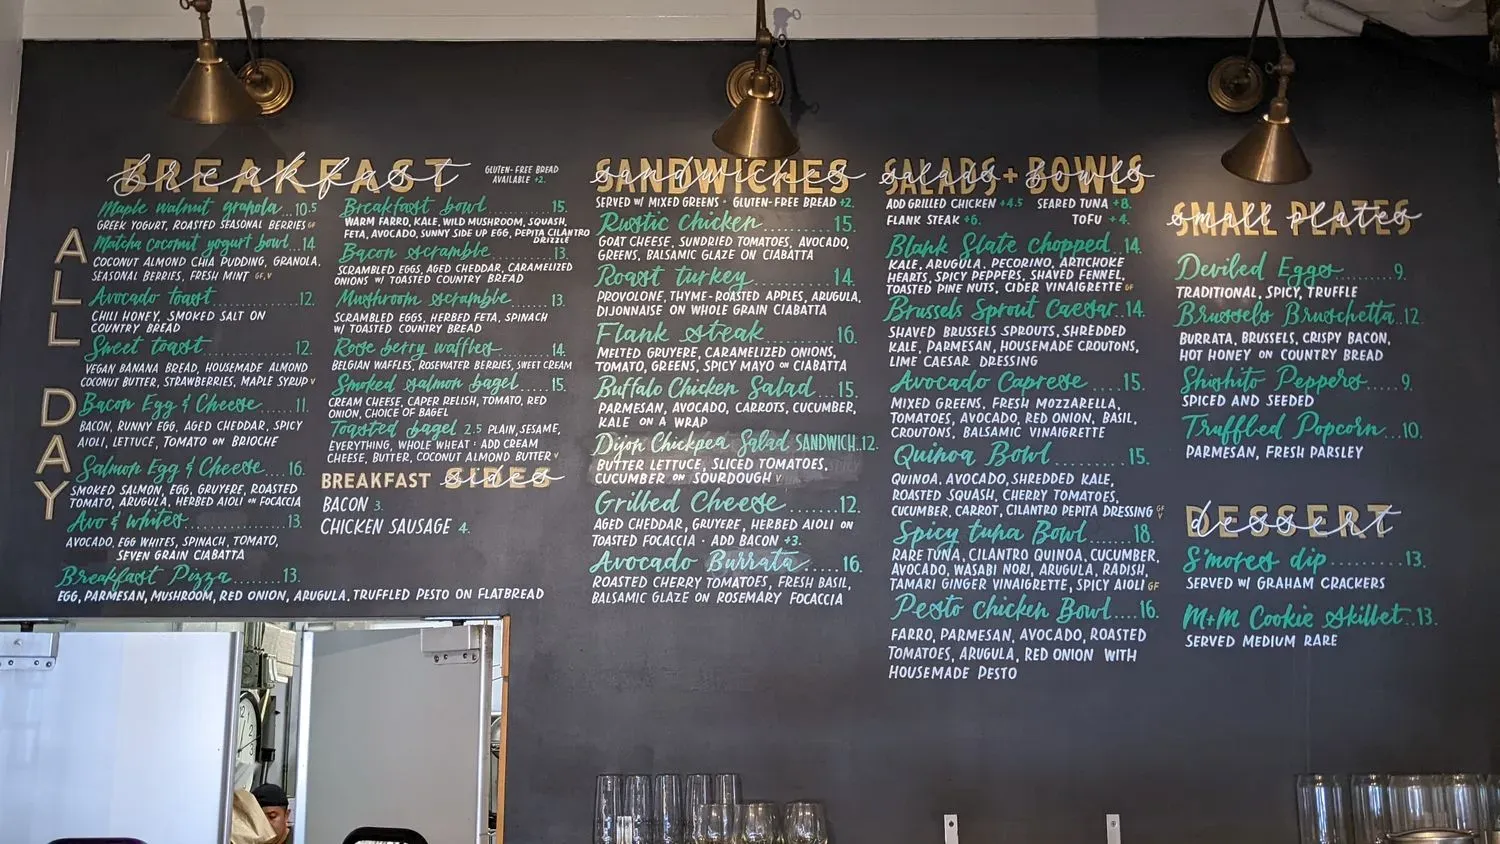 BREAKFAST
breakfast
GLUTEN-FREE BREAD
AVAILABLE +2.
ALL DAY
Maple walnut granola...10.5
GREEK YOGURT, ROASTED SEASONAL BERRIES GF
Matcha coconut yogurt bowl...14
COCONUT ALMOND CHIA PUDDING, GRANOLA,
SEASONAL BERRIES, FRESH MINT GF,V
Avocado toast............12.
CHILI HONEY, SMOKED SALT ON
COUNTRY BREAD
Sweet toast..............12.
VEGAN BANANA BREAD, HOUSEMADE ALMOND
COCONUT BUTTER, STRAWBERRIES, MAPLE SYRUP V
Bacon Egg & Cheese......11.
BACON, RUNNY EGG, AGED CHEDDAR, SPICY
AIOLI, LETTUCE, TOMATO ON BRIOCHE
Salmon Egg & Cheese....16.
SMOKED SALMON, EGG, GRUYERE, ROASTED
TOMATO, ARUGULA, HERBED AIOLI ON FOCACCIA
Avo & whites..............13.
AVOCADO, EGG WHITES, SPINACH, TOMATO,
SEVEN GRAIN CIABATTA
Breakfast Pizza........13.
EGG, PARMESAN, MUSHROOM, RED ONION, ARUGULA, TRUFFLED PESTO ON FLATBREAD
Breakfast bowl..........15.
WARM FARRO, KALE, WILD MUSHROOM, SQUASH,
FETA, AVOCADO, SUNNY SIDE UP EGG, PEPITA CILANTRO
DRIZZLE
Bacon scramble..........13.
SCRAMBLED EGGS, AGED CHEDDAR, CARAMELIZED
ONIONS W/ TOASTED COUNTRY BREAD
Mushroom scramble......13.
SCRAMBLED EGGS, HERBED FETA, SPINACH
W/ TOASTED COUNTRY BREAD
Rose berry waffles.......14.
BELGIAN WAFFLES, ROSEWATER BERRIES, SWEET CREAM
Smoked salmon bagel.....15.
CREAM CHEESE, CAPER RELISH, TOMATO, RED
ONION, CHOICE OF BAGEL
Toasted bagel 2.5 PLAIN, SESAME,
EVERYTHING, WHOLE WHEAT · ADD CREAM
CHEESE, BUTTER, COCONUT ALMOND BUTTER V
BREAKFAST SIDES
sides
BACON 3.
CHICKEN SAUSAGE 4.
SANDWICHES
sandwiches
SERVED W/ MIXED GREENS · GLUTEN-FREE BREAD +2.
Rustic Chicken............15.
GOAT CHEESE, SUNDRIED TOMATOES, AVOCADO,
GREENS, BALSAMIC GLAZE ON CIABATTA
Roast turkey..............14.
PROVOLONE, THYME-ROASTED APPLES, ARUGULA,
DIJONNAISE ON WHOLE GRAIN CIABATTA
Flank steak...............16.
MELTED GRUYERE, CARAMELIZED ONIONS,
TOMATO, GREENS, SPICY MAYO ON CIABATTA
Buffalo Chicken Salad....15.
PARMESAN, AVOCADO, CARROTS, CUCUMBER,
KALE ON A WRAP
Dijon Chickpea Salad SANDWICH..12.
BUTTER LETTUCE, SLICED TOMATOES,
CUCUMBER ON SOURDOUGH V
Grilled Cheese.........12.
AGED CHEDDAR, GRUYERE, HERBED AIOLI ON
TOASTED FOCACCIA · ADD BACON +3.
Avocado Burrata......16.
ROASTED CHERRY TOMATOES, FRESH BASIL,
BALSAMIC GLAZE ON ROSEMARY FOCACCIA
SALADS + BOWLS
salads bowls
ADD GRILLED CHICKEN +4.5 SEARED TUNA +8.
FLANK STEAK +6. TOFU +4.
Blank Slate chopped..14.
KALE, ARUGULA, PECORINO, ARTICHOKE
HEARTS, SPICY PEPPERS, SHAVED FENNEL,
TOASTED PINE NUTS, CIDER VINAIGRETTE GF
Brussels Sprout Caesar..14.
SHAVED BRUSSELS SPROUTS, SHREDDED
KALE, PARMESAN, HOUSEMADE CROUTONS,
LIME CAESAR DRESSING
Avocado Caprese.....15.
MIXED GREENS, FRESH MOZZARELLA,
TOMATOES, AVOCADO, RED ONION, BASIL,
CROUTONS, BALSAMIC VINAIGRETTE
Quinoa Bowl.........15.
QUINOA, AVOCADO, SHREDDED KALE,
ROASTED SQUASH, CHERRY TOMATOES,
CUCUMBER, CARROT, CILANTRO PEPITA DRESSING GF V
Spicy tuna Bowl......18.
RARE TUNA, CILANTRO QUINOA, CUCUMBER,
AVOCADO, WASABI NORI, ARUGULA, RADISH,
TAMARI GINGER VINAIGRETTE, SPICY AIOLI GF
Pesto chicken Bowl....16.
FARRO, PARMESAN, AVOCADO, ROASTED
TOMATOES, ARUGULA, RED ONION WITH
HOUSEMADE PESTO
SMALL PLATES
small plates
Deviled Eggs.........9.
TRADITIONAL, SPICY, TRUFFLE
Brussels Bruschetta..12.
BURRATA, BRUSSELS, CRISPY BACON,
HOT HONEY ON COUNTRY BREAD
Shishito Peppers.....9.
SPICED AND SEEDED
Truffled Popcorn...10.
PARMESAN, FRESH PARSLEY
DESSERT
dessert
S'mores dip..........13.
SERVED W/ GRAHAM CRACKERS
M+M Cookie Skillet..13.
SERVED MEDIUM RARE